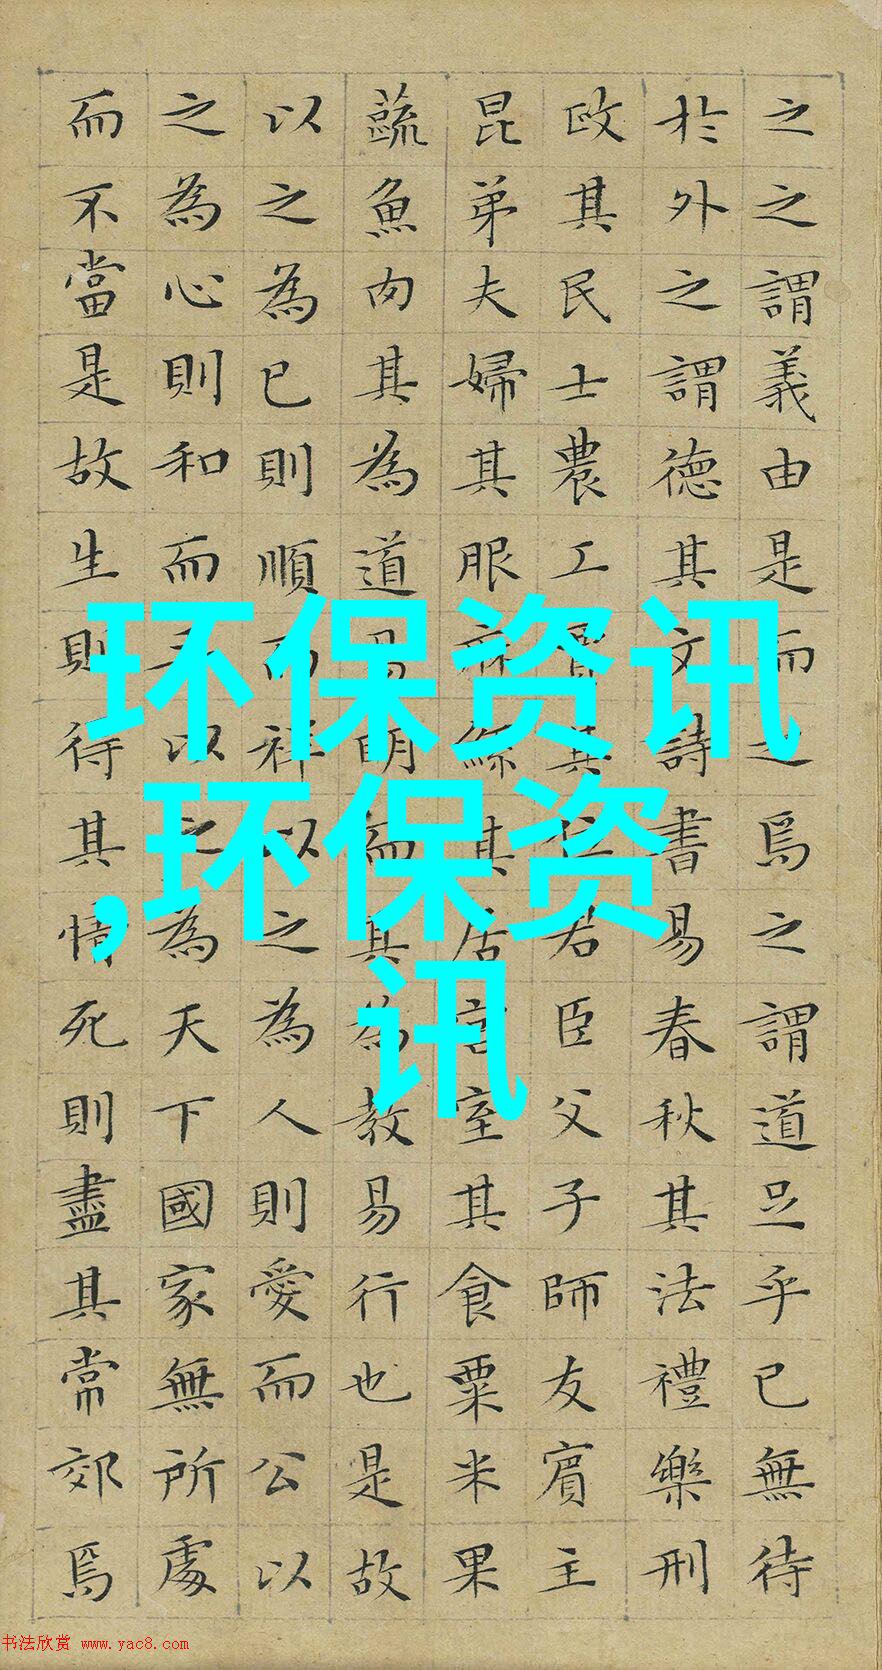 之之謂義由是而之焉之謂道足乎已無待
於外之謂德其文詩書易春秋其法禮樂刑
政其民士農工賈其位君臣父子師友賓主
昆弟夫婦其服麻絲其居宮室其食粟米果
蔬魚肉其為道易明而其為教易行也是故
以之為已則順而祥以之為人則愛而公以
之為心則和而平以之為天下國家無所處
而不當是故生則得其情死則盡其常郊焉
环保资讯
,环保资
讯
书法欣赏 www.yac8.com